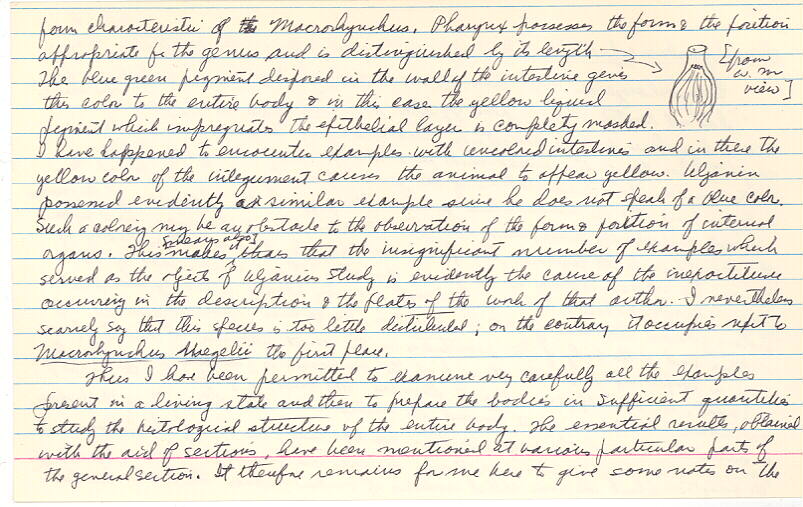 form characteristic of the Macrorhynchus. Pharynx possesses the form & the position
appropriate for the genus and is distinguished by its length
The blue green pigment desposed in the wall of the intestine gives
[from w.m view]
this color to the entire body & in this case the yellow liquid
pigment which impregnates the epithelial layer is completly masked.
I have happened to encounter examples with uncolored intestines and in these the
yellow color of the integument causes the animal to appear yellow. Uljanin
possessed evidently a similar example since he does not speak of a blue color.
Such a coloring may be an obstacle to the observation of the form & position of internal
organs. This makes it than that the insignificant number of examples which
served as the object of Uljanins study is evidently the cause of the inexactitude
occurring in the description & the plates of the work of that author. I nevertheless
scarcely say that this species is too little distributed; on the contrary it occupies next to
Macrorhynchus Naegelii the first place.
Thus I have been permitted to examine very carefully all the examples
present in a living state and then to prepare the bodies in sufficient quantities
to study the histological structure of the entire body. The essential results, obtained
with the aid of sections, have been mentioned at various particular parts of
the general section. It therefore remains for me here to give some notes on the